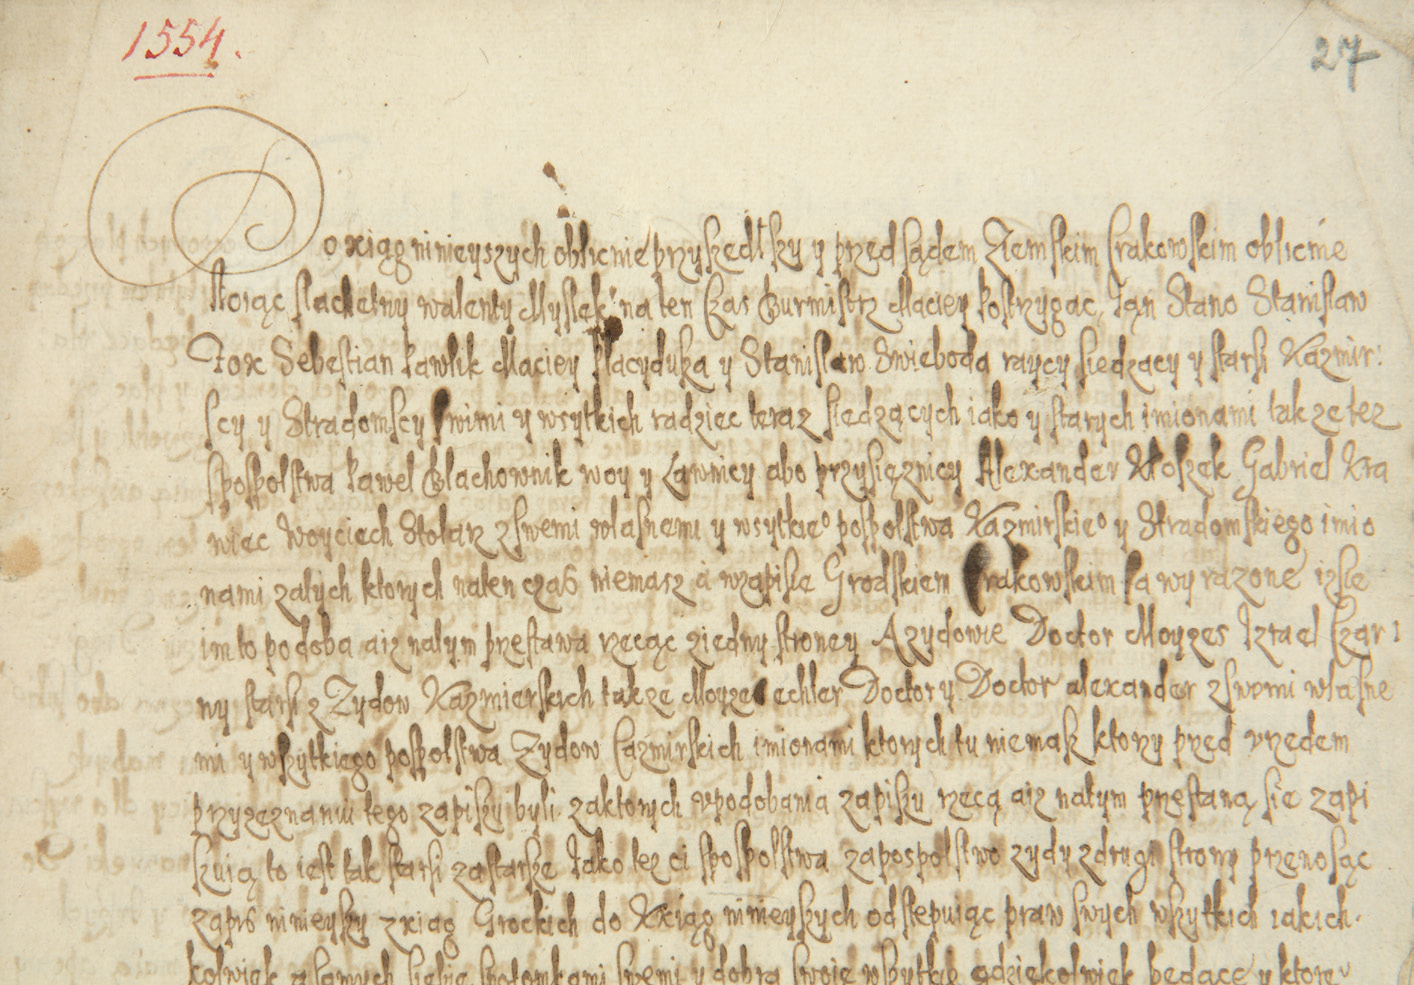 1554.
27
Do xiąg ninieyszych oblicnie przyszedłszy y przed sądem Ziemskim Crakowskim oblicnie
stoiąc slachetny walenty Myslek na ten Czas Burmistrz Maciey kostrzygac, Ian Stano Stanislaw
Fox Sebestian Pawlik Maciey Placyduka y Stanislaw Swieboda raycy siedzący y starsi Kazmir:
scy y Stradomscy swimi y wsytkich radziec teraz siedzących iako y starych imionami tak ze tez
spospolstwa Pawel Blachownik woy y Lawnicy abo przysięznicy Alexander Kloszek Gabriel Kra
wiec Woyciech Stolarz z swemi wlasnemi y wsytkie⁰ pospolstwa Kazmirskie⁰ y Stradomskiego imio
nami zatych ktorych naten czas niemasz a wzapisie Grodskiem Crakowskim sa wyrazone izsie
im to podoba aiz natym przestawa rzecąc ziedny stroney A zydowie Doctor Moyzes Izrael Czar
ny starsi z Zydow Kazmierskich takze Moyzes echler Doctor y Doctor alexander z swemi wlasne
mi y wszytkiego pospolstwa Zydow Cazmirskich imionami ktorych tu niemasz ktorzy przed vrzedem
przyzeznaniu tego zapisku byli zaktorych vpodobania zapisku rzecą aiz natym przestaną sie zapi
szuią to iest tak starsi zastarsze Iako tez ci spospolstwa zapospolstwo zydy zdrugi strony przenosząc
zapis ninieyszy z xiag Grockich do Xxiąg ninieyszych odstepuiąc praw swych wszytkich iakich-
kolwiek zasamych siebie spotomkami swemi y dobra swoie wszytkie gdziekolwiek będące y ktore